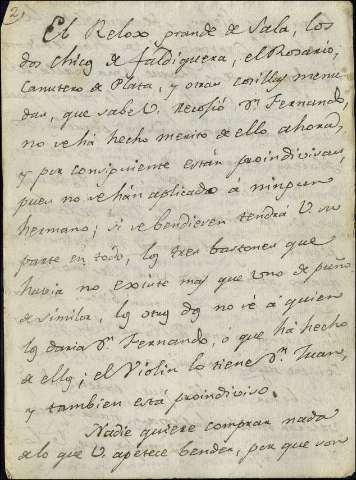 2
El Relox grande de Sala, los
dos chicos de faldiquera, el Rosario,
Canutero de Plata, y otras cosillas menu
das, que sabe V. recojió Dn. Fernando,
no se há hecho merito de ello ahora,
y por consiguiente están proindivisas,
pues no se hán aplicado á ningun
hermano; si se bendiesen tendrá V. su
parte en todo, los tres bastones que
havia no existe mas que uno de puño
de similor, los otros dos no sé á quien
los daria Dn. Fernando, ó que há hecho
de ellos; el Violin lo tiene Dn. Juan,
y tambien está proindiviso.
Nadie quiere comprar nada
de lo que V. apetece bender, por que son